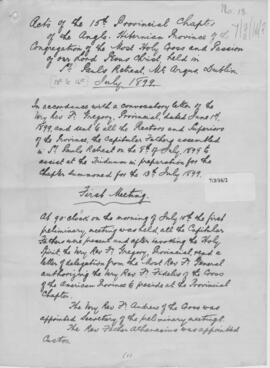 No. 13.
Acts of the 15th Provincial Chapter
of the Anglo-Hibernian Province of the
Congregation of the Most Holy Cross and Passion
of our Lord Jesus Christ held in
St. Pauls Retreat, Mt. Argus, Dublin
July 1899.
In accordance with a convocatory letter of the
Very Rev. Fr. Gregory, Provincial, dated June 19,
1899, and sent to all the Rectors and Superiors
of the Province, the Capitular Fathers assembled
in St. Pauls Retreat on the 8th of July 1899 to
assist at the Triduum in preparation for the
Chapter summoned for the 13th July 1899.
7/3/16/2
First Meeting
At 9 o'clock on the morning of July 10th the first
preliminary meeting was held, all the Capitular
Fathers were present and after invoking the Holy
Spirit the Very Rev. Fr. Gregory, Provincial, read a
letter of delegation from the Most Rev. Fr. General
authorizing the Very Rev. Fr. Fidelis of the Cross
of the American Province to preside at the Provincial
Chapter.
The Very Rev. Fr. Andrew of the Cross was
appointed Secretary of the preliminary meetings.
The Rev. Father Athanasius was appointed
Custos
(1)